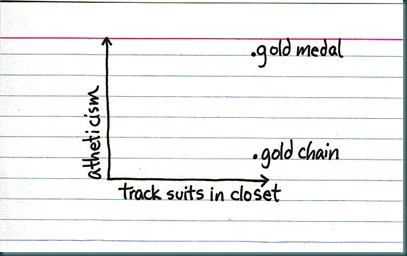 gold medal
atheticism
gold chain
track suits in closet